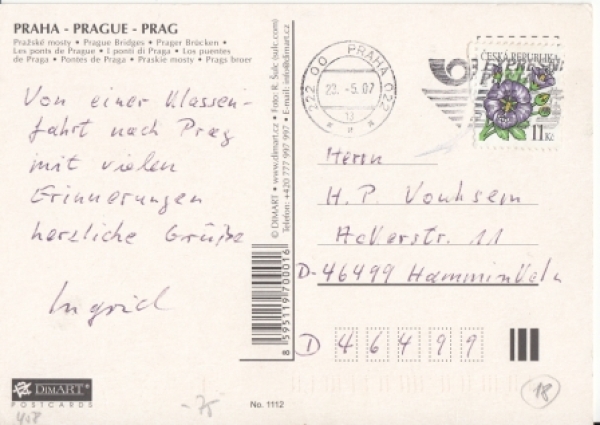 PRAHA - PRAGUE - PRAG
Pražské mosty • Prague Bridges • Prager Brücken •
Les ponts de Prague • I ponti di Praga • Los puentes
de Praga • Pontes de Praga • Praskie mosty • Prags broer
Von einer Klassen-
fahrt nach Prag
mit vielen
Erinnerungen
herzliche Grüße
Ingrid
DIMART®
POSTCARDS
408
-75
No. 1112
© DIMART • www.dimart.cz • Foto: R. Šulc (sulc.com)
Telefon: +420 777 997 997 • E-mail: info@dimart.cz
8595119700016
222 00 PRAHA 022
22. -5. 07
13
ČESKÁ REPUBLIKA
11 Kč
Herrn
H. P. Vonhsem
Ackerstr. 11
D-46499 Hamminkeln
D 46499
18